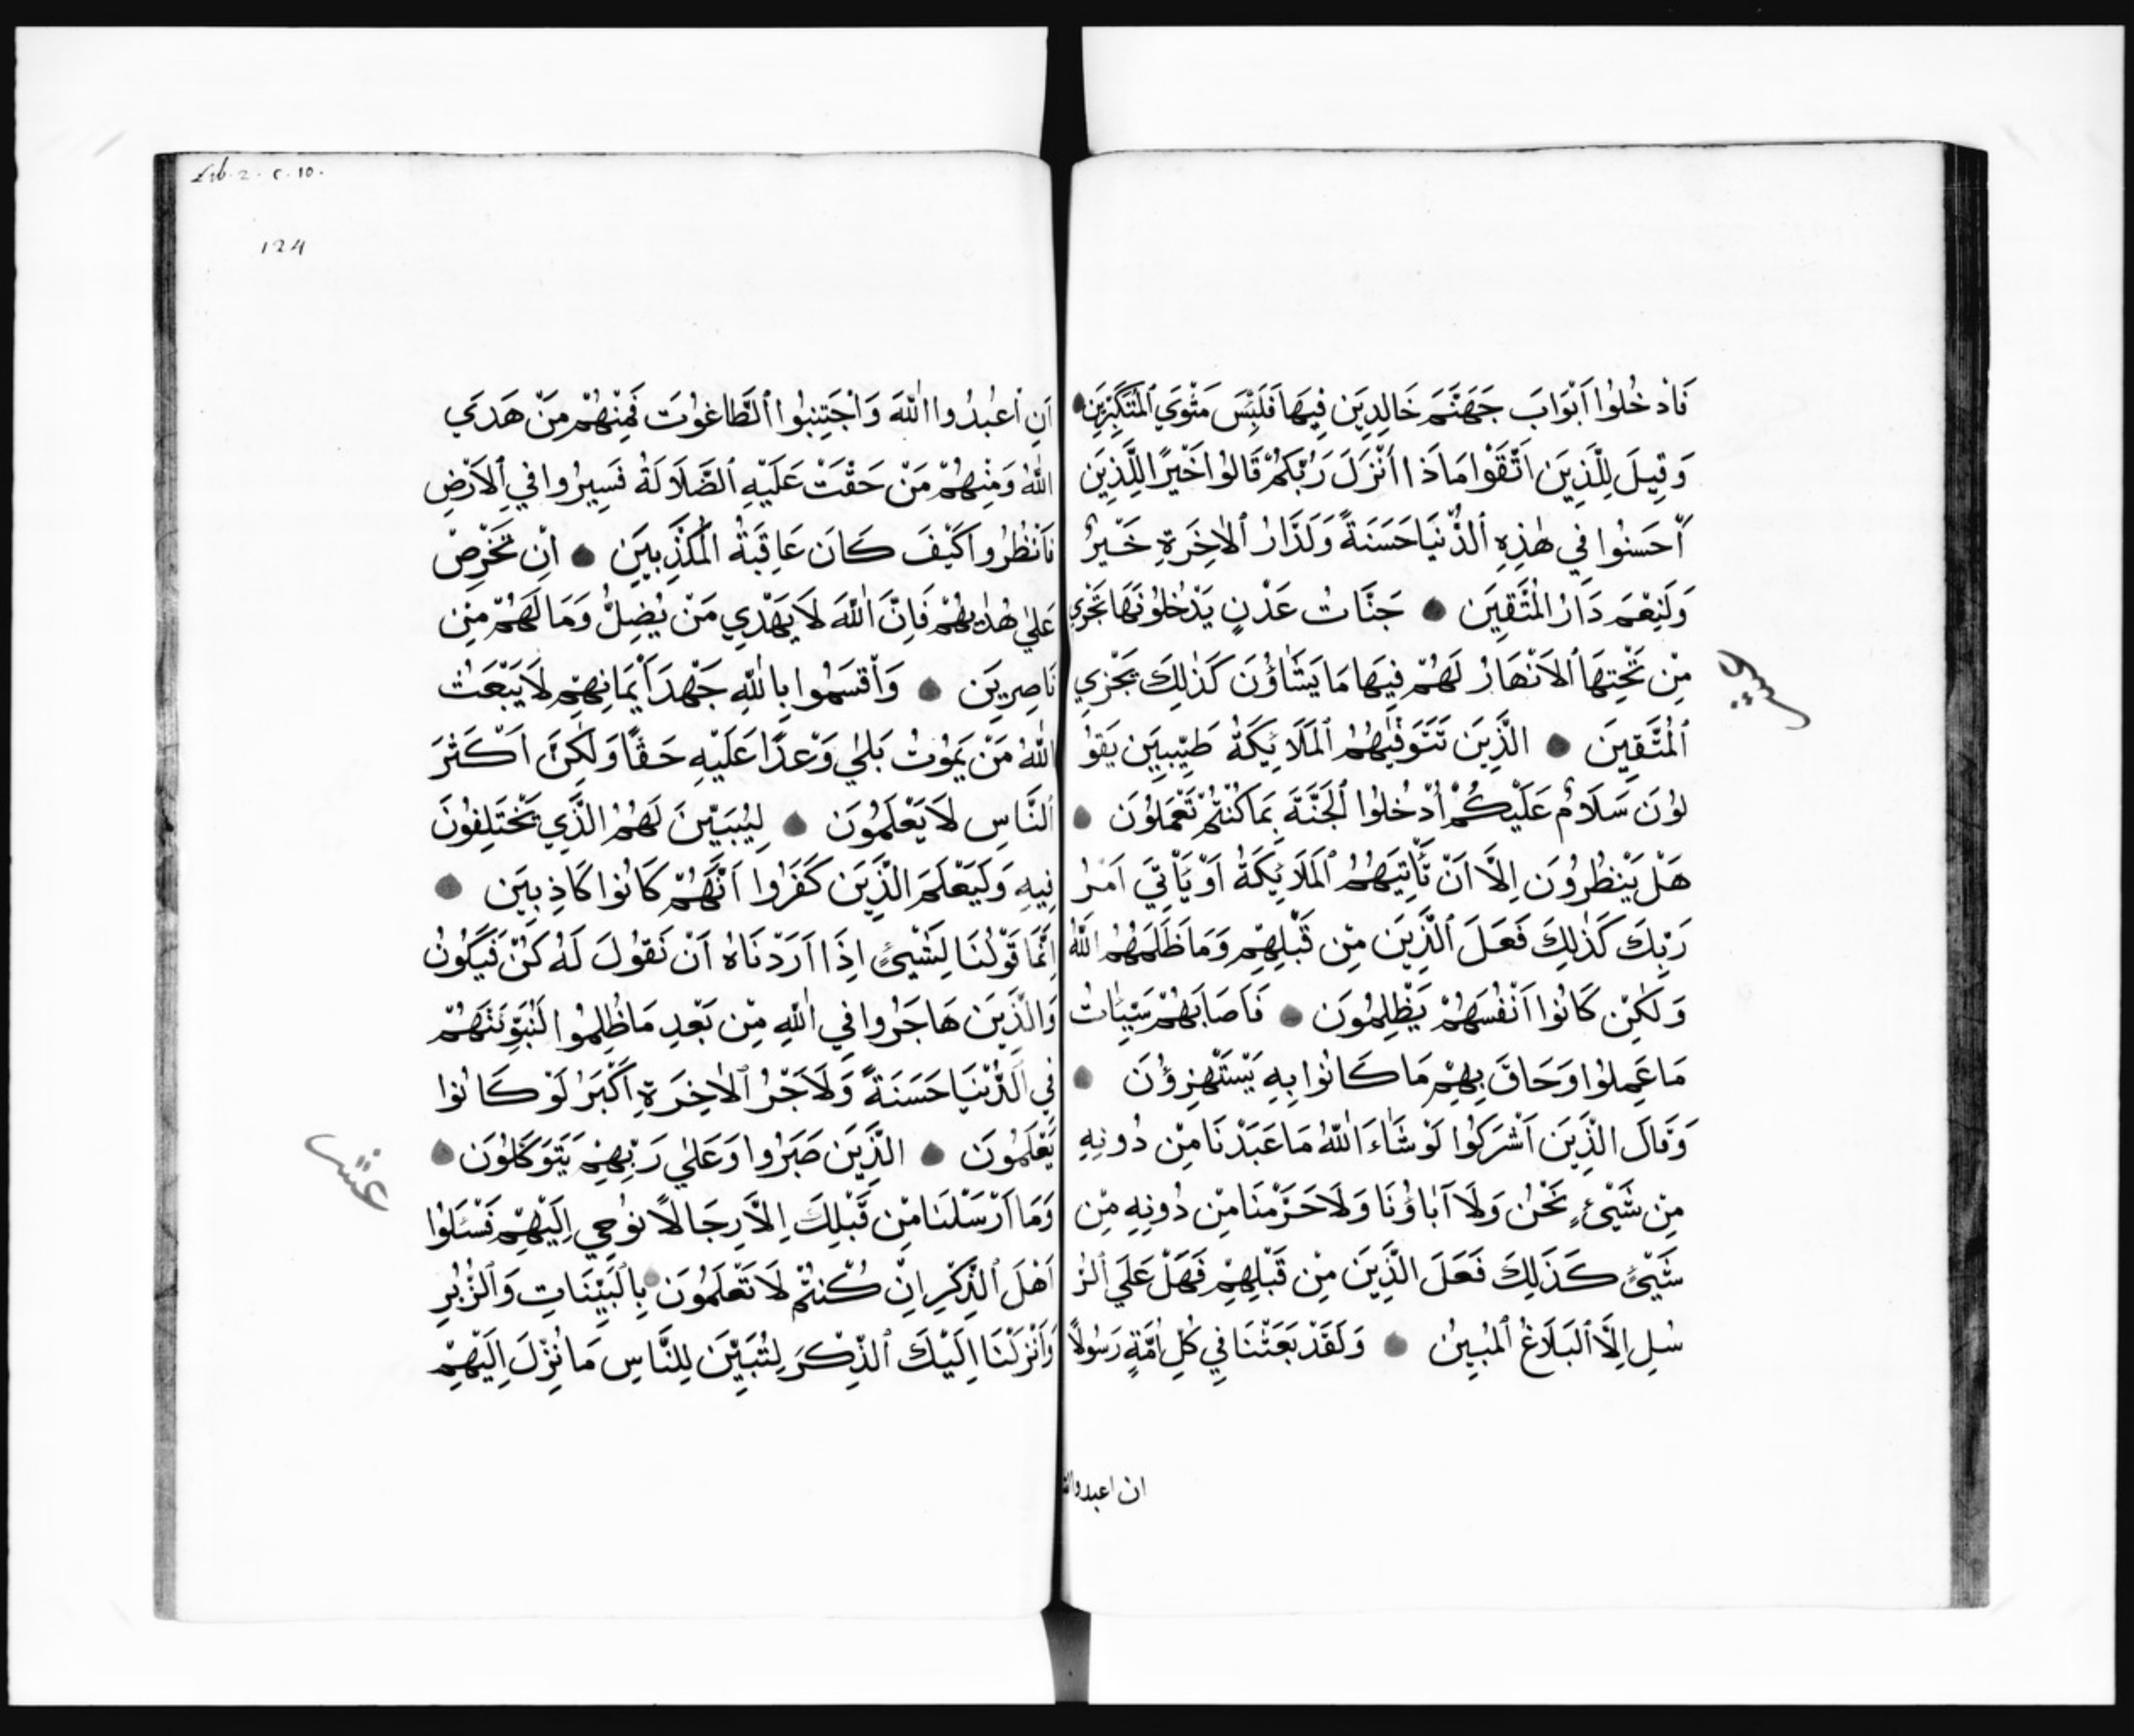 فَادْخُلُوا اَبْوَابَ جَهَنَّمَ خَالِدِينَ فِيهَا فَلَبِئْسَ مَثْوَي الْمُتَكَبِّرِينَ
وَقِيلَ لِلَّذِينَ اتَّقَوْا مَاذَا اَنْزَلَ رَبُّكُمْ قَالُوا خَيْرًا لِلَّذِينَ
اَحْسَنُوا فِي هٰذِهِ الدُّنْيَا حَسَنَةً وَلَدَارُ الْاٰخِرَةِ خَيْرٌ
وَلَنِعْمَ دَارُ الْمُتَّقِينَ جَنَّاتُ عَدْنٍ يَدْخُلُونَهَا تَجْرِي
مِنْ تَحْتِهَا الْاَنْهَارُ لَهُمْ فِيهَا مَا يَشَاؤُنَ كَذٰلِكَ يَجْزِي
عشر
الْمُتَّقِينَ الَّذِينَ تَتَوَفّٰيهُمُ الْمَلَائِكَةُ طَيِّبِينَ يَقُو
لُونَ سَلَامٌ عَلَيْكُمْ اُدْخُلُوا الْجَنَّةَ بِمَا كُنْتُمْ تَعْمَلُونَ
هَلْ يَنْظُرُونَ اِلَّا اَنْ تَأْتِيَهُمُ الْمَلَائِكَةُ اَوْ يَأْتِيَ اَمْرُ
رَبِّكَ كَذٰلِكَ فَعَلَ الَّذِينَ مِنْ قَبْلِهِمْ وَمَا ظَلَمَهُمُ اللّٰهُ
وَلٰكِنْ كَانُوا اَنْفُسَهُمْ يَظْلِمُونَ فَاَصَابَهُمْ سَيِّئَاتُ
مَا عَمِلُوا وَحَاقَ بِهِمْ مَا كَانُوا بِهِ يَسْتَهْزِؤُنَ
وَقَالَ الَّذِينَ اَشْرَكُوا لَوْ شَاءَ اللّٰهُ مَا عَبَدْنَا مِنْ دُونِهِ
مِنْ شَيْئٍ نَحْنُ وَلَا اٰبَاؤُنَا وَلَا حَرَّمْنَا مِنْ دُونِهِ مِنْ
شَيْئٍ كَذَلِكَ فَعَلَ الَّذِينَ مِنْ قَبْلِهِمْ فَهَلْ عَلَي الرُّ
سُلِ اِلَّا الْبَلَاغُ الْمُبِينُ وَلَقَدْ بَعَثْنَا فِي كُلِّ اُمَّةٍ رَسُولًا
ان اعبدوا الله
Lib. 2. c. 10.
124
اَنِ اعْبُدُوا اللّٰهَ وَاجْتَنِبُوا الطَّاغُوتَ فَمِنْهُمْ مَنْ هَدَي
اللّٰهُ وَمِنْهُمْ مَنْ حَقَّتْ عَلَيْهِ الضَّلَالَةُ فَسِيرُوا فِي الْاَرْضِ
فَانْظُرُوا كَيْفَ كَانَ عَاقِبَةُ الْمُكَذِّبِينَ اِنْ تَحْرِصْ
عَلٰي هُدٰيهُمْ فَاِنَّ اللّٰهَ لَا يَهْدِي مَنْ يُضِلُّ وَمَا لَهُمْ مِنْ
نَاصِرِينَ وَاَقْسَمُوا بِاللّٰهِ جَهْدَ اَيْمَانِهِمْ لَا يَبْعَثُ
اللّٰهُ مَنْ يَمُوتُ بَلٰي وَعْدًا عَلَيْهِ حَقًّا وَلٰكِنَّ اَكْثَرَ
النَّاسِ لَا يَعْلَمُونَ لِيُبَيِّنَ لَهُمُ الَّذِي يَخْتَلِفُونَ
فِيهِ وَلِيَعْلَمَ الَّذِينَ كَفَرُوا اَنَّهُمْ كَانُوا كَاذِبِينَ
اِنَّمَا قَوْلُنَا لِشَيْئٍ اِذَا اَرَدْنَاهُ اَنْ نَقُولَ لَهُ كُنْ فَيَكُونُ
وَالَّذِينَ هَاجَرُوا فِي اللّٰهِ مِنْ بَعْدِ مَا ظُلِمُوا لَنُبَوِّئَنَّهُمْ
فِي الدُّنْيَا حَسَنَةً وَلَاَجْرُ الْاٰخِرَةِ اَكْبَرُ لَوْ كَانُوا
يَعْلَمُونَ الَّذِينَ صَبَرُوا وَعَلٰي رَبِّهِمْ يَتَوَكَّلُونَ
عشر
وَمَا اَرْسَلْنَا مِنْ قَبْلِكَ اِلَّا رِجَالًا نُوحِي اِلَيْهِمْ فَسْئَلُوا
اَهْلَ الذِّكْرِ اِنْ كُنْتُمْ لَا تَعْلَمُونَ بِالْبَيِّنَاتِ وَالزُّبُرِ
وَاَنْزَلْنَا اِلَيْكَ الذِّكْرَ لِتُبَيِّنَ لِلنَّاسِ مَا نُزِّلَ اِلَيْهِمْ